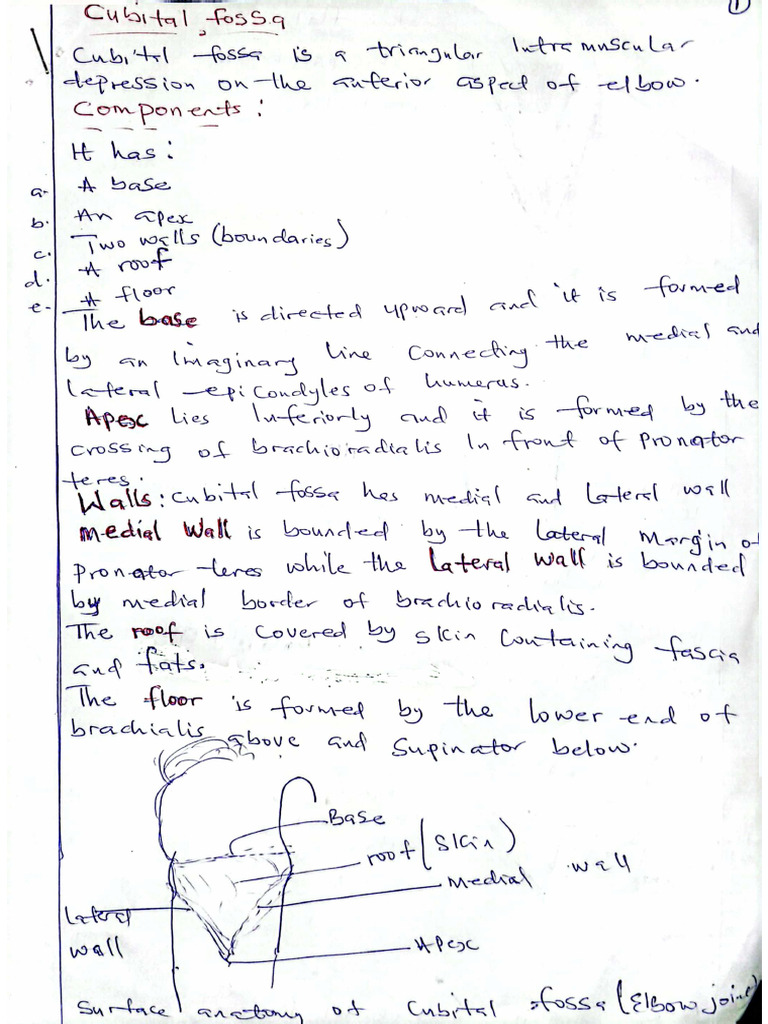 1
Cubital fossa
Cubital fossa is a triangular Intramuscular
depression on the anterior aspect of elbow.
Components:
It has:
a. A base
b. An apex
c. Two walls (boundaries)
d. A roof
e. A floor
The base is directed upward and it is formed
by an Imaginary line connecting the medial and
lateral epicondyles of humerus.
Apex lies Inferiorly and it is formed by the
crossing of brachioradialis In front of Pronator
teres.
Walls: cubital fossa has medial and lateral wall
medial wall is bounded by the lateral Margin of
Pronator teres while the lateral wall is bounded
by medial border of brachioradialis.
The roof is covered by skin containing fascia
and fats.
The floor is formed by the lower end of
brachialis above and Supinator below.
Base
roof (Skin)
Medial wall
lateral
wall
Apex
Surface anatomy of Cubital fossa (Elbow joint)